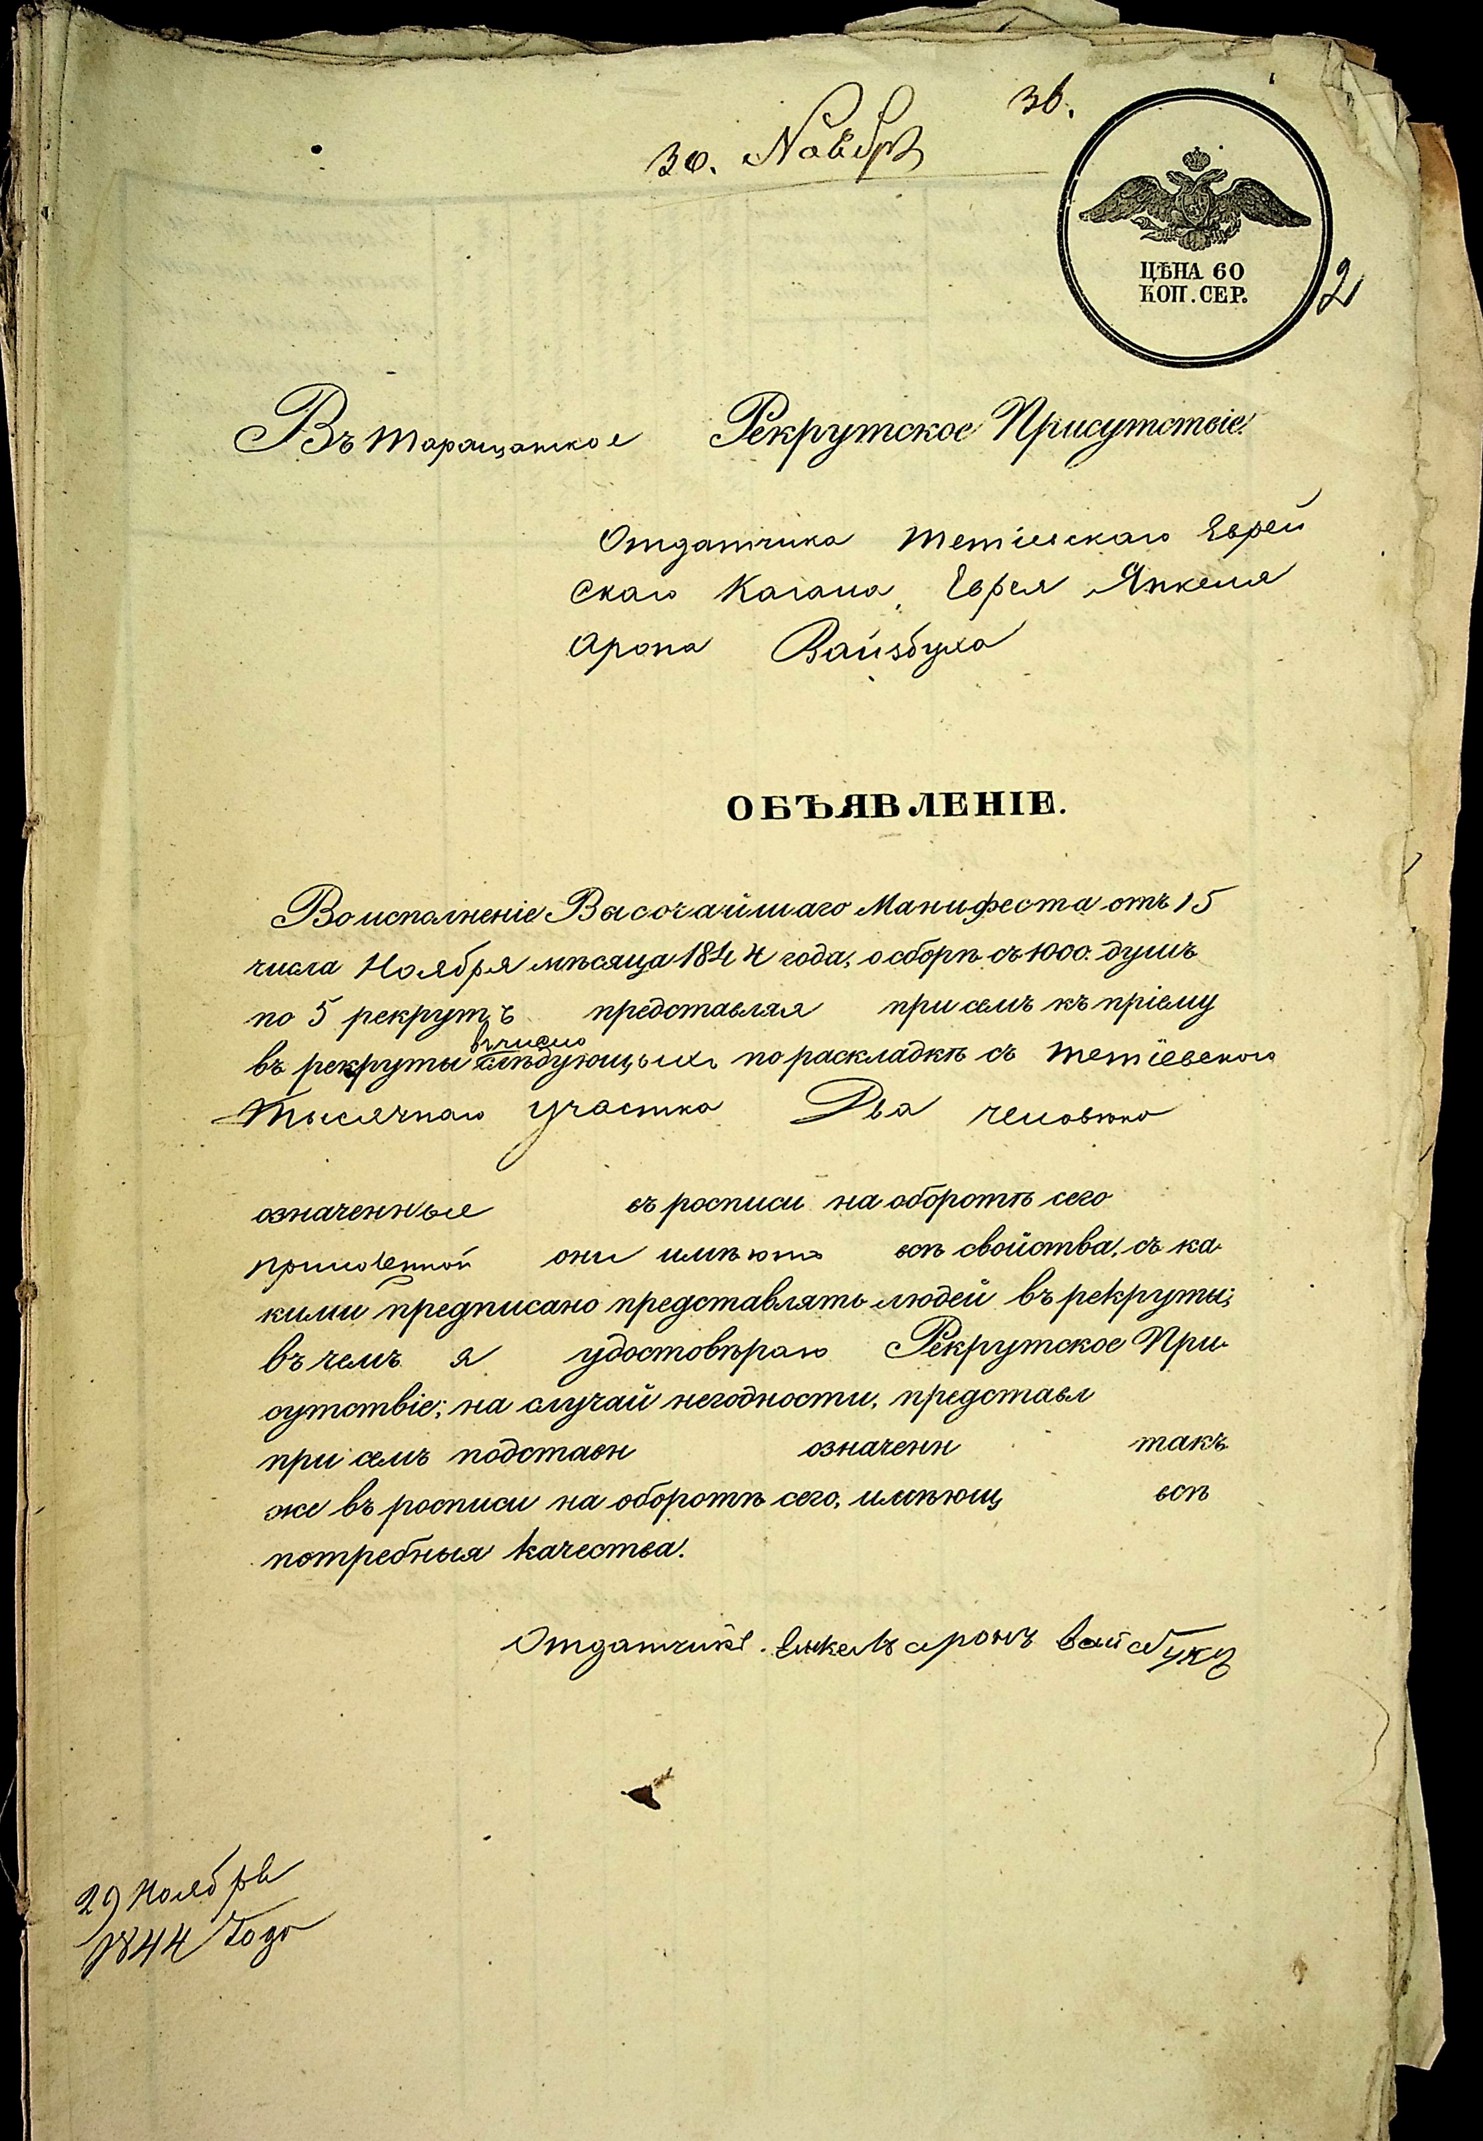 36.
30. Ноябр
ЦѢНА 60
КОП. СЕР.
2
Въ Таращанское Рекрутское Присутствіе.
Отдатчика Тетіевскаго Еврей
скаго Кагала, Еврея Янкеля
Арона Вайзбуха
ОБЪЯВЛЕНІЕ.
Во исполненіе Высочайшаго Манифеста отъ 15
числа Ноября мѣсяца 1844 года, о сборѣ съ 1000. душъ
по 5 рекрутъ представляя при семъ къ пріему
въ число
въ рекруты слѣдующихъ по раскладкѣ съ Тетіевского
Тысячнаго участка Два человѣка
означенные въ росписи на оборотѣ сего
они имѣютъ всѣ свойства, съ ка-
кими предписано представлять людей въ рекруты;
въ чемъ я удостовѣраю Рекрутское При-
сутствіе; на случай негодности, представл
при семъ подставн означенн такъ
же въ росписи на оборотѣ сего, имѣющ всѣ
потребныя качества.
Отдатчикъ Янкель аронъ вайсбухъ
29 Ноября
1844 Года